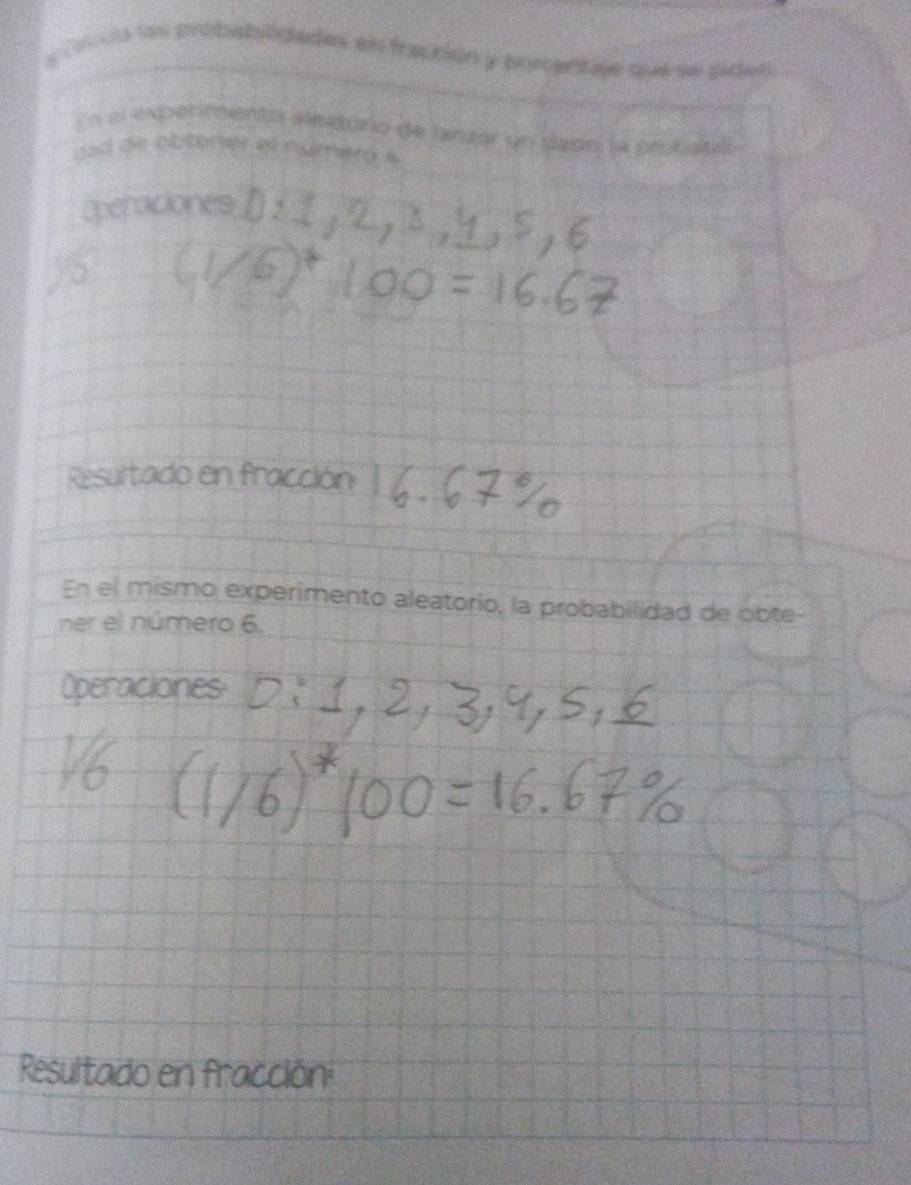 las probabilidades en fracción y porcentaje que se piden
En el experimento aleatorio de lanzar un dado, la probabili-
dad de obtener el número 4.
Operaciones: D: 1, 2, 3, 4, 5, 6
(1/6)* 100 = 16.67
Resultado en fracción: 16.67%
En el mismo experimento aleatorio, la probabilidad de obte-
ner el número 6.
Operaciones: D: 1, 2, 3, 4, 5, 6
1/6 (1/6)* 100 = 16.67%
Resultado en fracción: